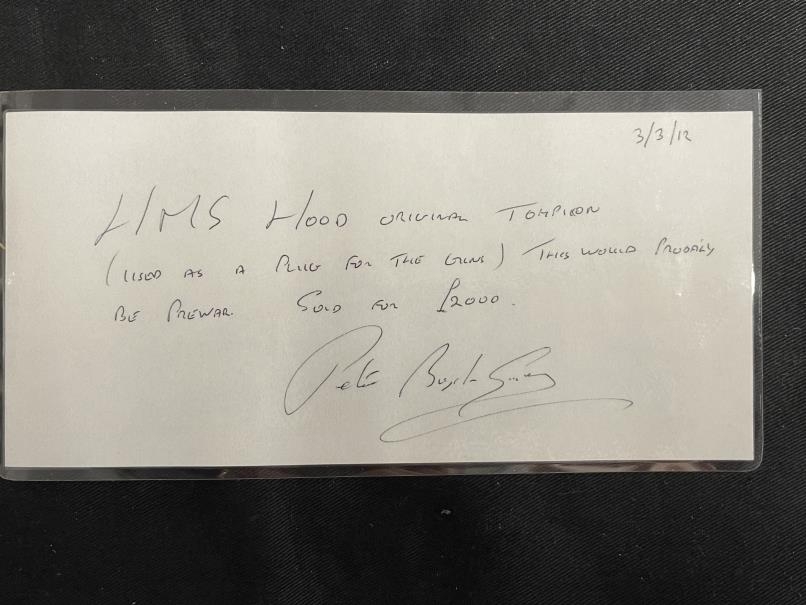 3/3/12
HMS HOOD ORIGINAL TOMPION
(USED AS A PLUG FOR THE GUNS) THIS WOULD PROBABLY
BE PREWAR. SOLD FOR £2000.
Peter